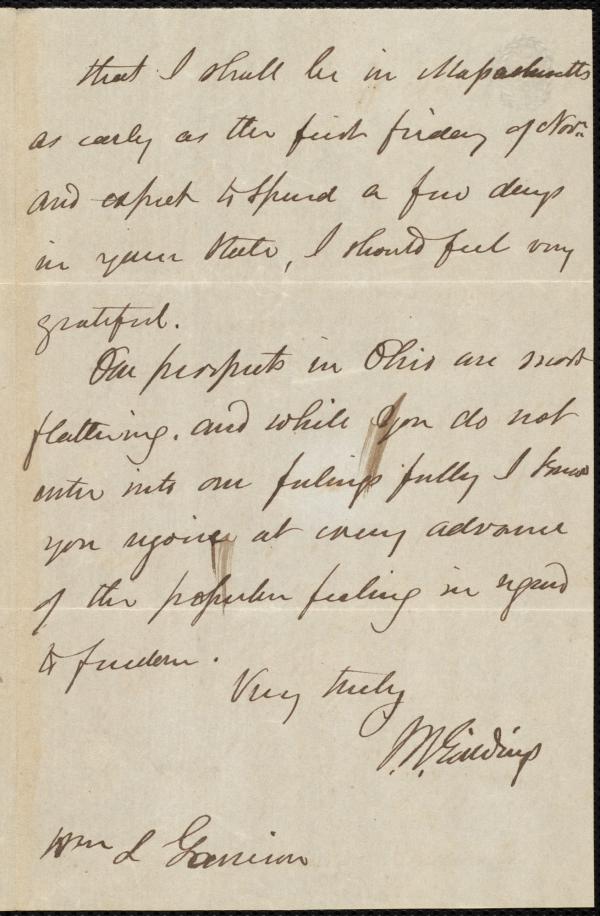 that I shall be in Massachusetts
as early as the first friday of Novr.
and expect to spend a few days
in your State, I should feel very
grateful.
Our prospects in Ohio are most
flattering. and while you do not
enter into our feelings fully I know
you rejoice at every advance
of the popular feeling in regard
to freedom.
Very truly
J. R. Giddings
Wm L Garrison